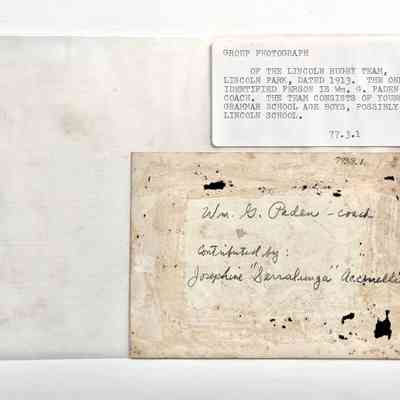 GROUP PHOTOGRAPH
OF THE LINCOLN RUGBY TEAM,
LINCOLN PARK, DATED 1913. THE ONL
IDENTIFIED PERSON IS Wm. G. PADEN
COACH. THE TEAM CONSISTS OF YOUNG
GRAMMAR SCHOOL AGE BOYS, POSSIBLY
LINCOLN SCHOOL.
77.3.1
Wm. G. Paden - coach
Contributed by:
Josephine "Serralunga"